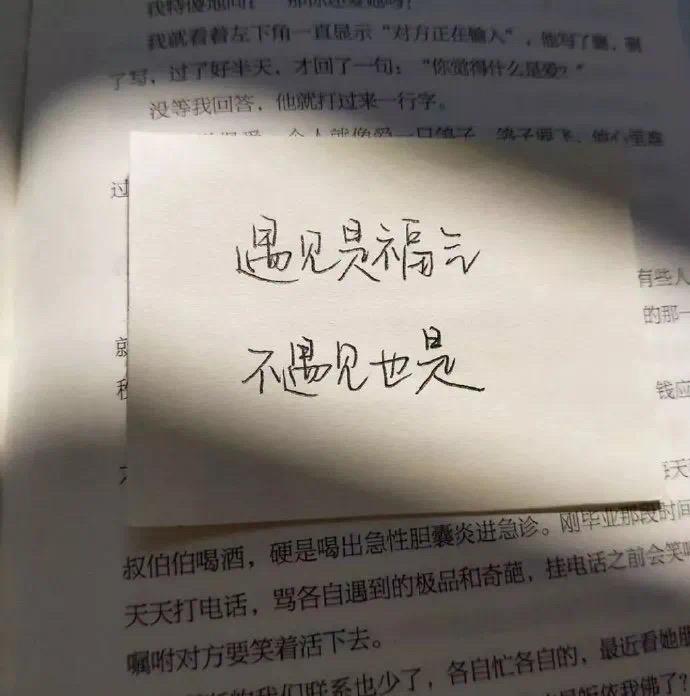 我就看着左下角一直显示“对方正在输入”，他写了删，删
了写，过了好半天，才回了一句：“你觉得什么是爱？”
没等我回答，他就打过来一行字。
过
遇见是福气
有些人
的那一
不遇见也是
就
钱应
叔伯伯喝酒，硬是喝出急性胆囊炎进急诊。刚毕业那段时间
天天打电话，骂各自遇到的极品和奇葩，挂电话之前会笑
嘱咐对方要笑着活下去。
我们联系也少了，各自忙各自的，最近看她朋